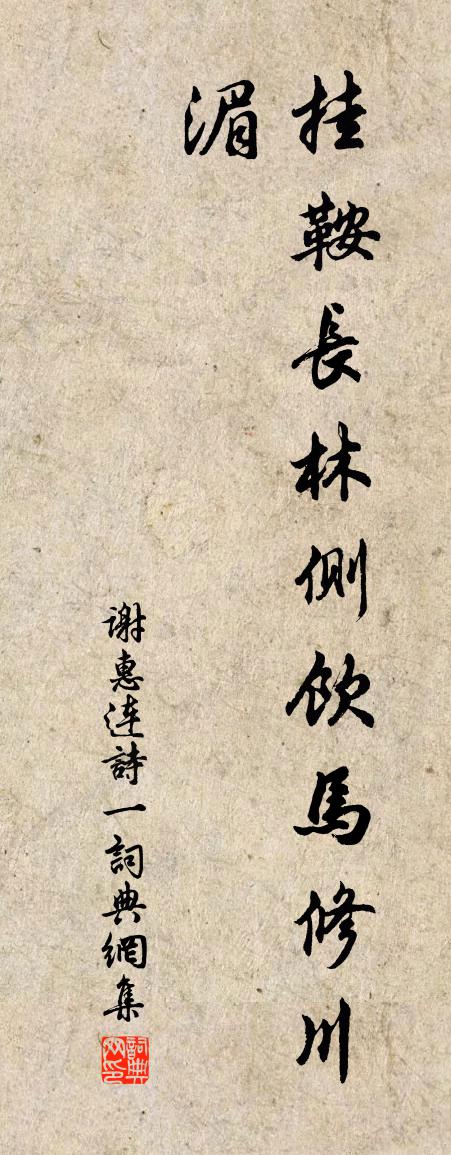 挂鞍長林側飲馬修川
湄
谢惠連詩一詞典網集
詞典网印